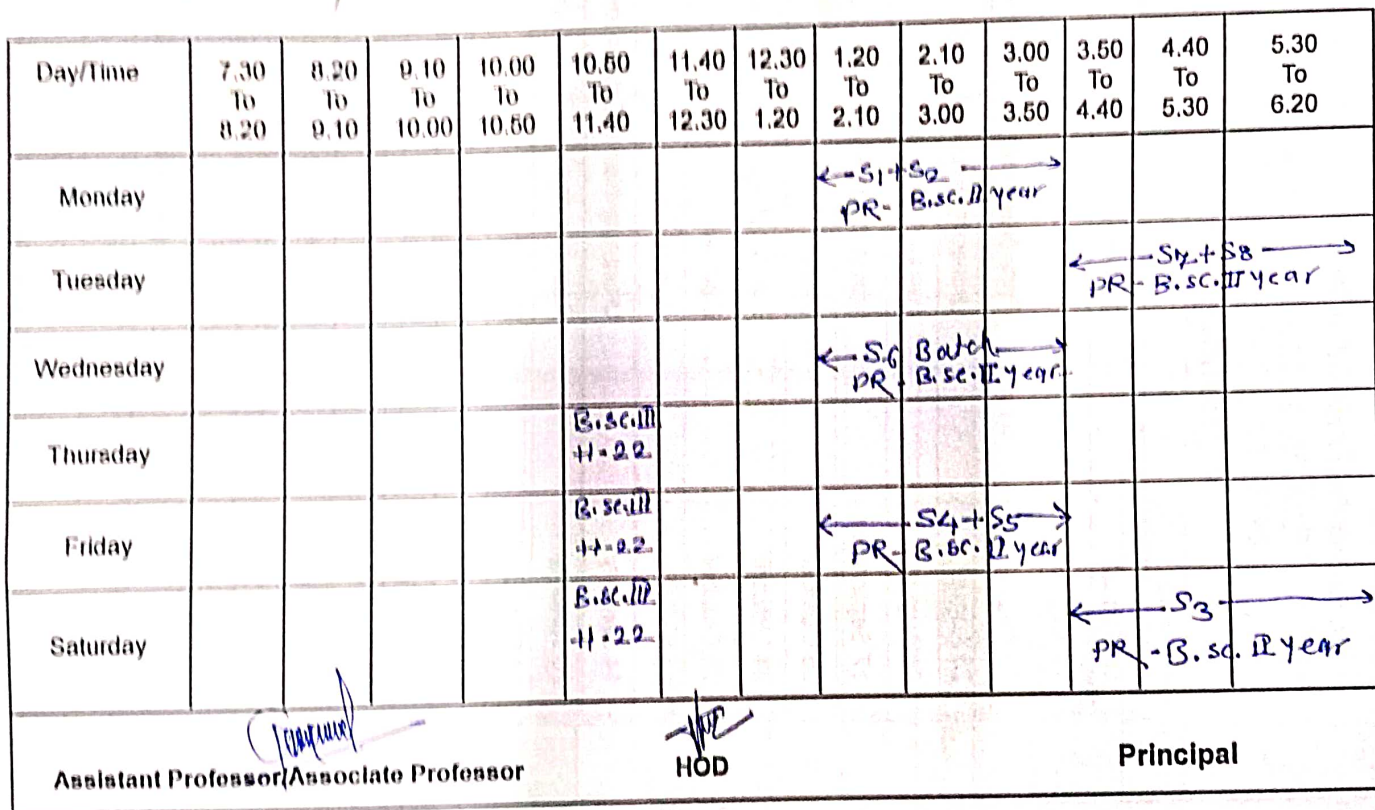 Day/Time 7.30 To 8.20 8.20 To 9.10 9.10 To 10.00 10.00 To 10.50 10.50 To 11.40 11.40 To 12.30 12.30 To 1.20 1.20 To 2.10 2.10 To 3.00 3.00 To 3.50 3.50 To 4.40 4.40 To 5.30 5.30 To 6.20
Monday S1+S2
PR- B.sc. II year
Tuesday S7+S8
PR- B.sc. II year
Wednesday S6 Batch
PR- B.sc. II year
Thursday B.sc.III
H-22
Friday B.sc.III S4+S5
H-22 PR- B.sc. II year
Saturday B.sc.III S3
H-22 PR-B.sc. II year
Assistant Professor/Associate Professor HOD Principal